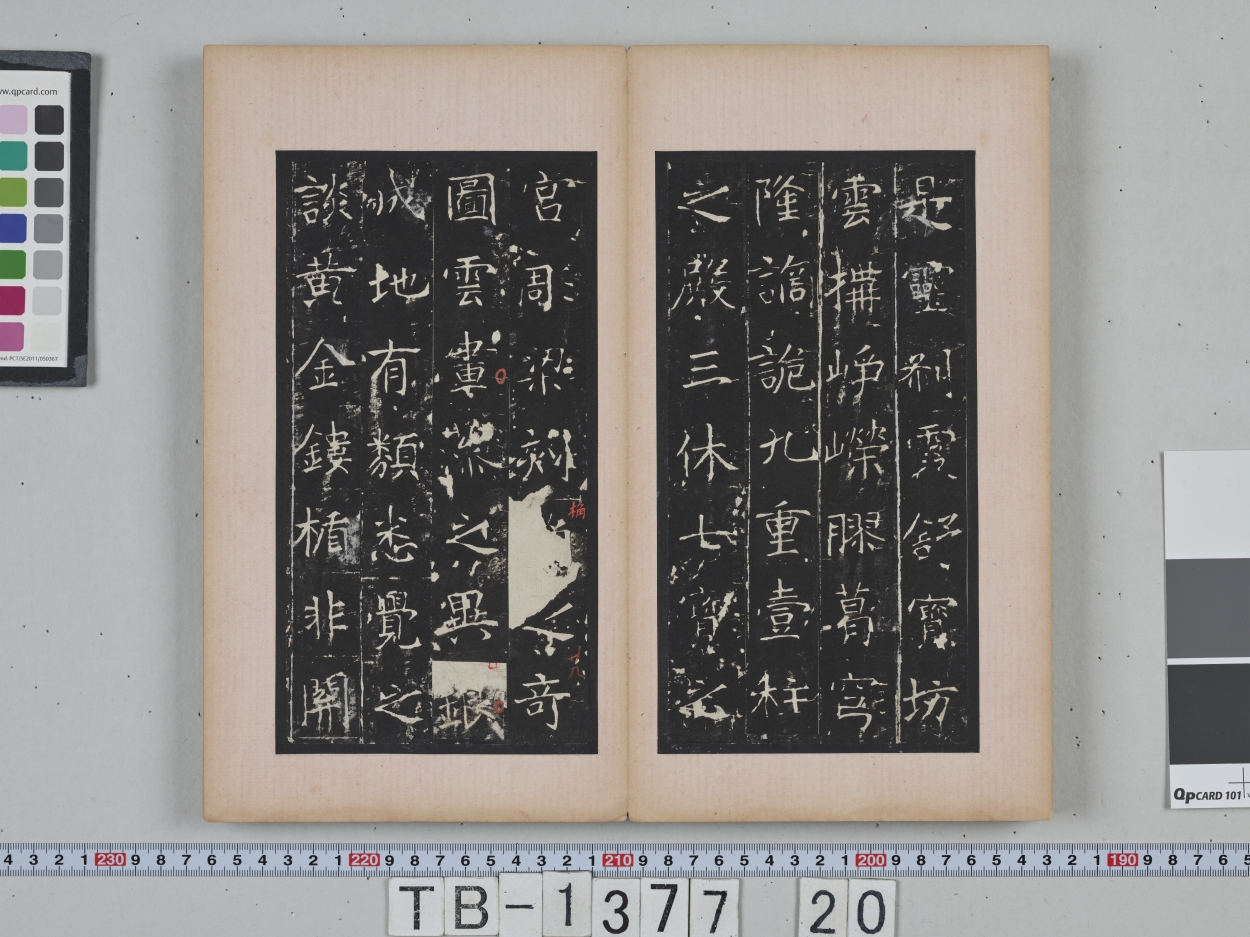 是靈刹霞舒寶坊
雲構崢嶸膠葛穹
隆譎詭九重壹柱
之殿三休七寶之
宮彫梁刻桷之奇
圖雲畫藻之異白銀
成地有類悉覺之
談黃金鏤楯非關
TB-1377 20
ww.qpcard.com
QpCARD 101
4 3 2 1 230 9 8 7 6 5 4 3 2 1 220 9 8 7 6 5 4 3 2 1 210 9 8 7 6 5 4 3 2 1 200 9 8 7 6 5 4 3 2 1 190 9 8 7 6 5